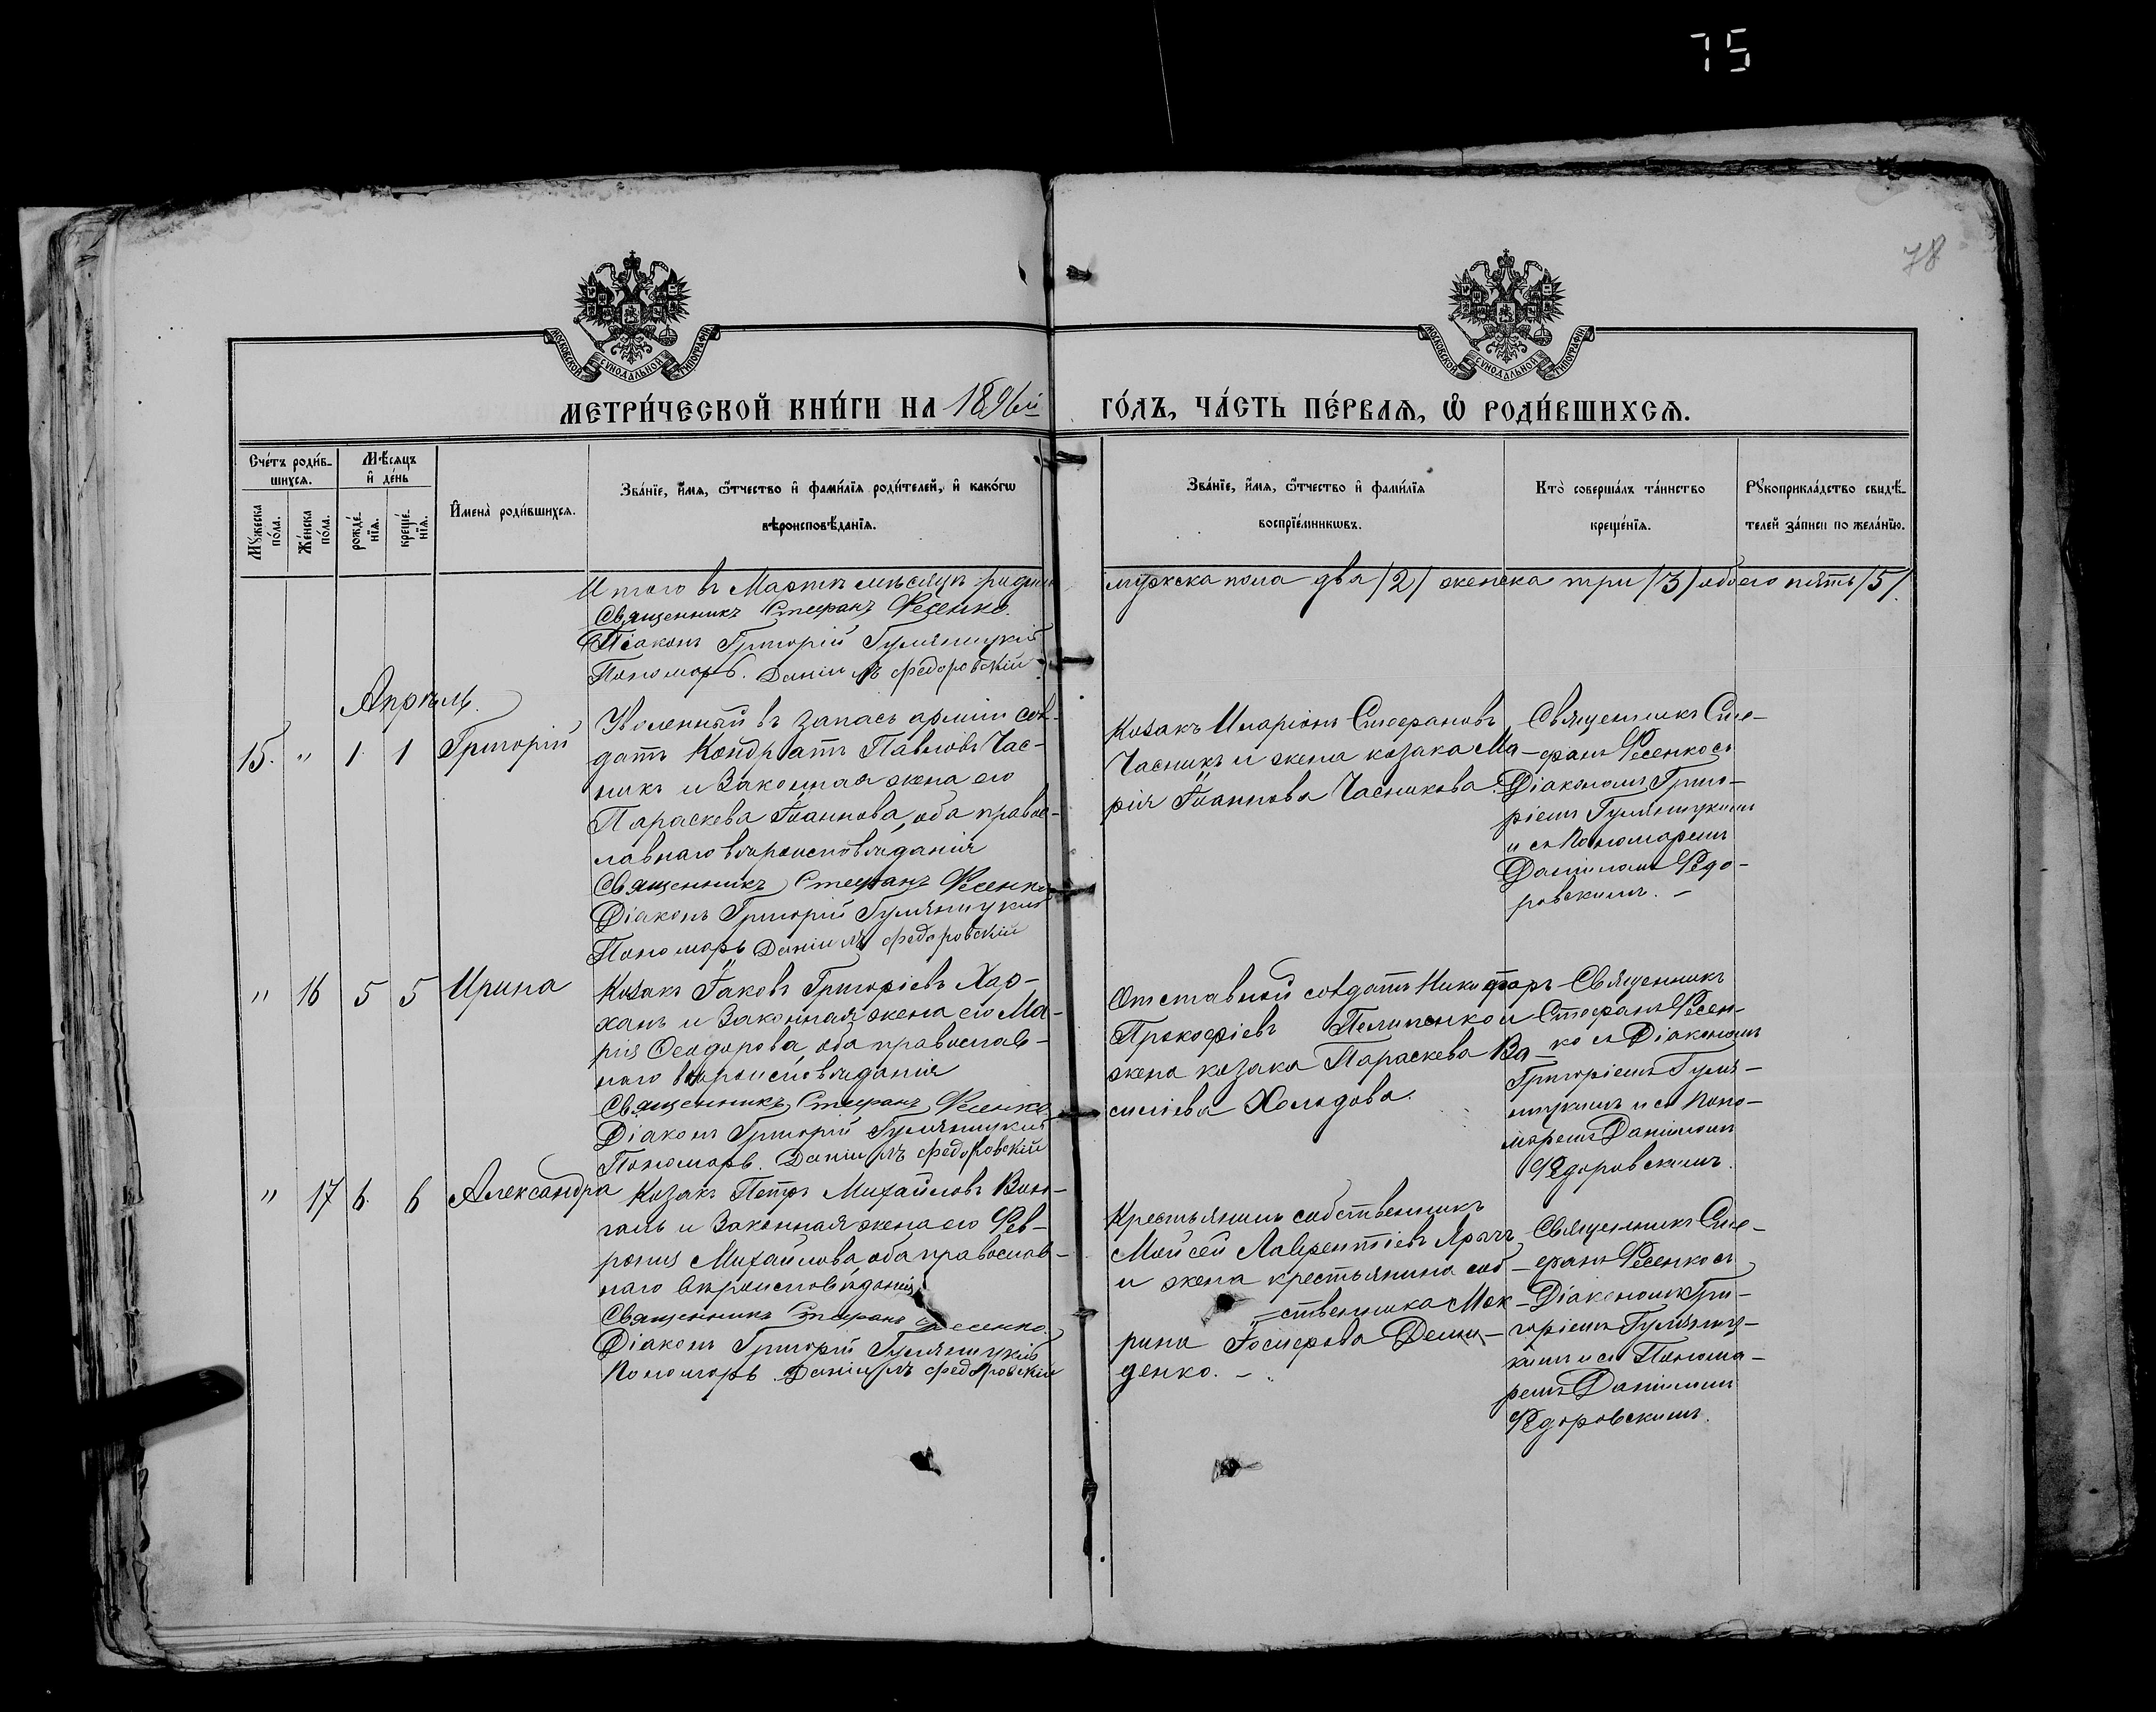 75
78
МОСКОВСКОЙ СУНОДАЛЬНОЙ ТИПОГРАФІИ
МОСКОВСКОЙ СУНОДАЛЬНОЙ ТИПОГРАФІИ
МЕТРИ́ЧЕСКОЙ КНИ́ГИ НА 1896й ГО́ДЪ, ЧА́СТЬ ПЕ́РВАЯ, Ѡ РОДИ́ВШИХСЯ.
Сче́тъ роди́в-
шихся.
Мꙋжеска по́ла.
Же́нска по́ла.
Мѣ́сяцъ и де́нь
рожде́-
нїя.
креще́-
нїя.
Имена̀ роди́вшихся.
Зва́нїе, и́мя, ѻ́тчество и фами́лїя роди́телей, и како́гѡ
вѣроисповѣ́данїя.
Зва́нїе, и́мя, ѻ́тчество и фами́лїя
воспрїе́мникѡвъ.
Кто̀ соверша́лъ та́инство
креще́нїя.
Рꙋкоприкла́дство свидѣ́-
телей за́писи по жела́нїю.
Итого въ Мартѣ мѣсяцѣ родил.
мужска пола два /2/ женска три /3/ обоего пять /5/.
Священникъ Стефанъ Фесенко.
Діаконъ Григорій Гуляницкій
Пономарь. Даніилъ Федоровскій
Апрѣль.
15. " 1 1 Григорій
Уволенный въ запасъ арміи сол-
датъ Кондратъ Павловъ Час-
никъ и Законная жена его
Параскева Іоаннова, оба правос-
лавнаго вѣроисповѣданія
Священникъ Стефанъ Фесенко
Діаконъ Григорій Гуляницкій
Пономарь Даніилъ Федоровскій
Козакъ Иларіонъ Стефановъ
Часникъ и жена козака Ма-
рія Іоаннова Часникова.
Священникъ Сте-
фанъ Фесенко съ
Діакономъ Григо-
ріемъ Гуляницкимъ
и съ Пономаремъ
Даніиломъ Федо-
ровскимъ. -
" 16 5 5 Ирина
Козакъ Іаковъ Григоріевъ Хар-
ханъ и Законная жена его Ма-
рія Ѳеодорова, оба православ-
наго вѣроисповѣданія
Священникъ Стефанъ Фесенко
Діаконъ Григорій Гуляницкій
Пономарь. Даніилъ Федоровскій
Отставной солдатъ Никифоръ
Прокофіевъ Пелипенко и
жена козака Параскева Ва-
силіева Холодова.
Священникъ
Стефанъ Фесен-
ко съ Діакономъ
Григоріемъ Гуля-
ницкимъ и съ Поно-
маремъ Даніиломъ
Федоровскимъ.
" 17 6. 6 Александра
Козакъ Петръ Михайловъ
и Законная жена его Фев-
ронія Михайлова, оба православ-
наго вѣроисповѣданія
Священникъ Стефанъ Фесенко.
Діаконъ Григорій Гуляницкій
Пономарь. Даніилъ Федоровскій
Крестьянинъ собственникъ
Мойсей Лаврентіевъ
и жена крестьянина соб-
=ственника Мок-
рина Іосифова Деми-
денко. -
Священникъ Сте-
фанъ Фесенко съ
Діакономъ Гри-
горіемъ Гуляниц-
кимъ и съ Понома-
ремъ Даніиломъ
Федоровскимъ.